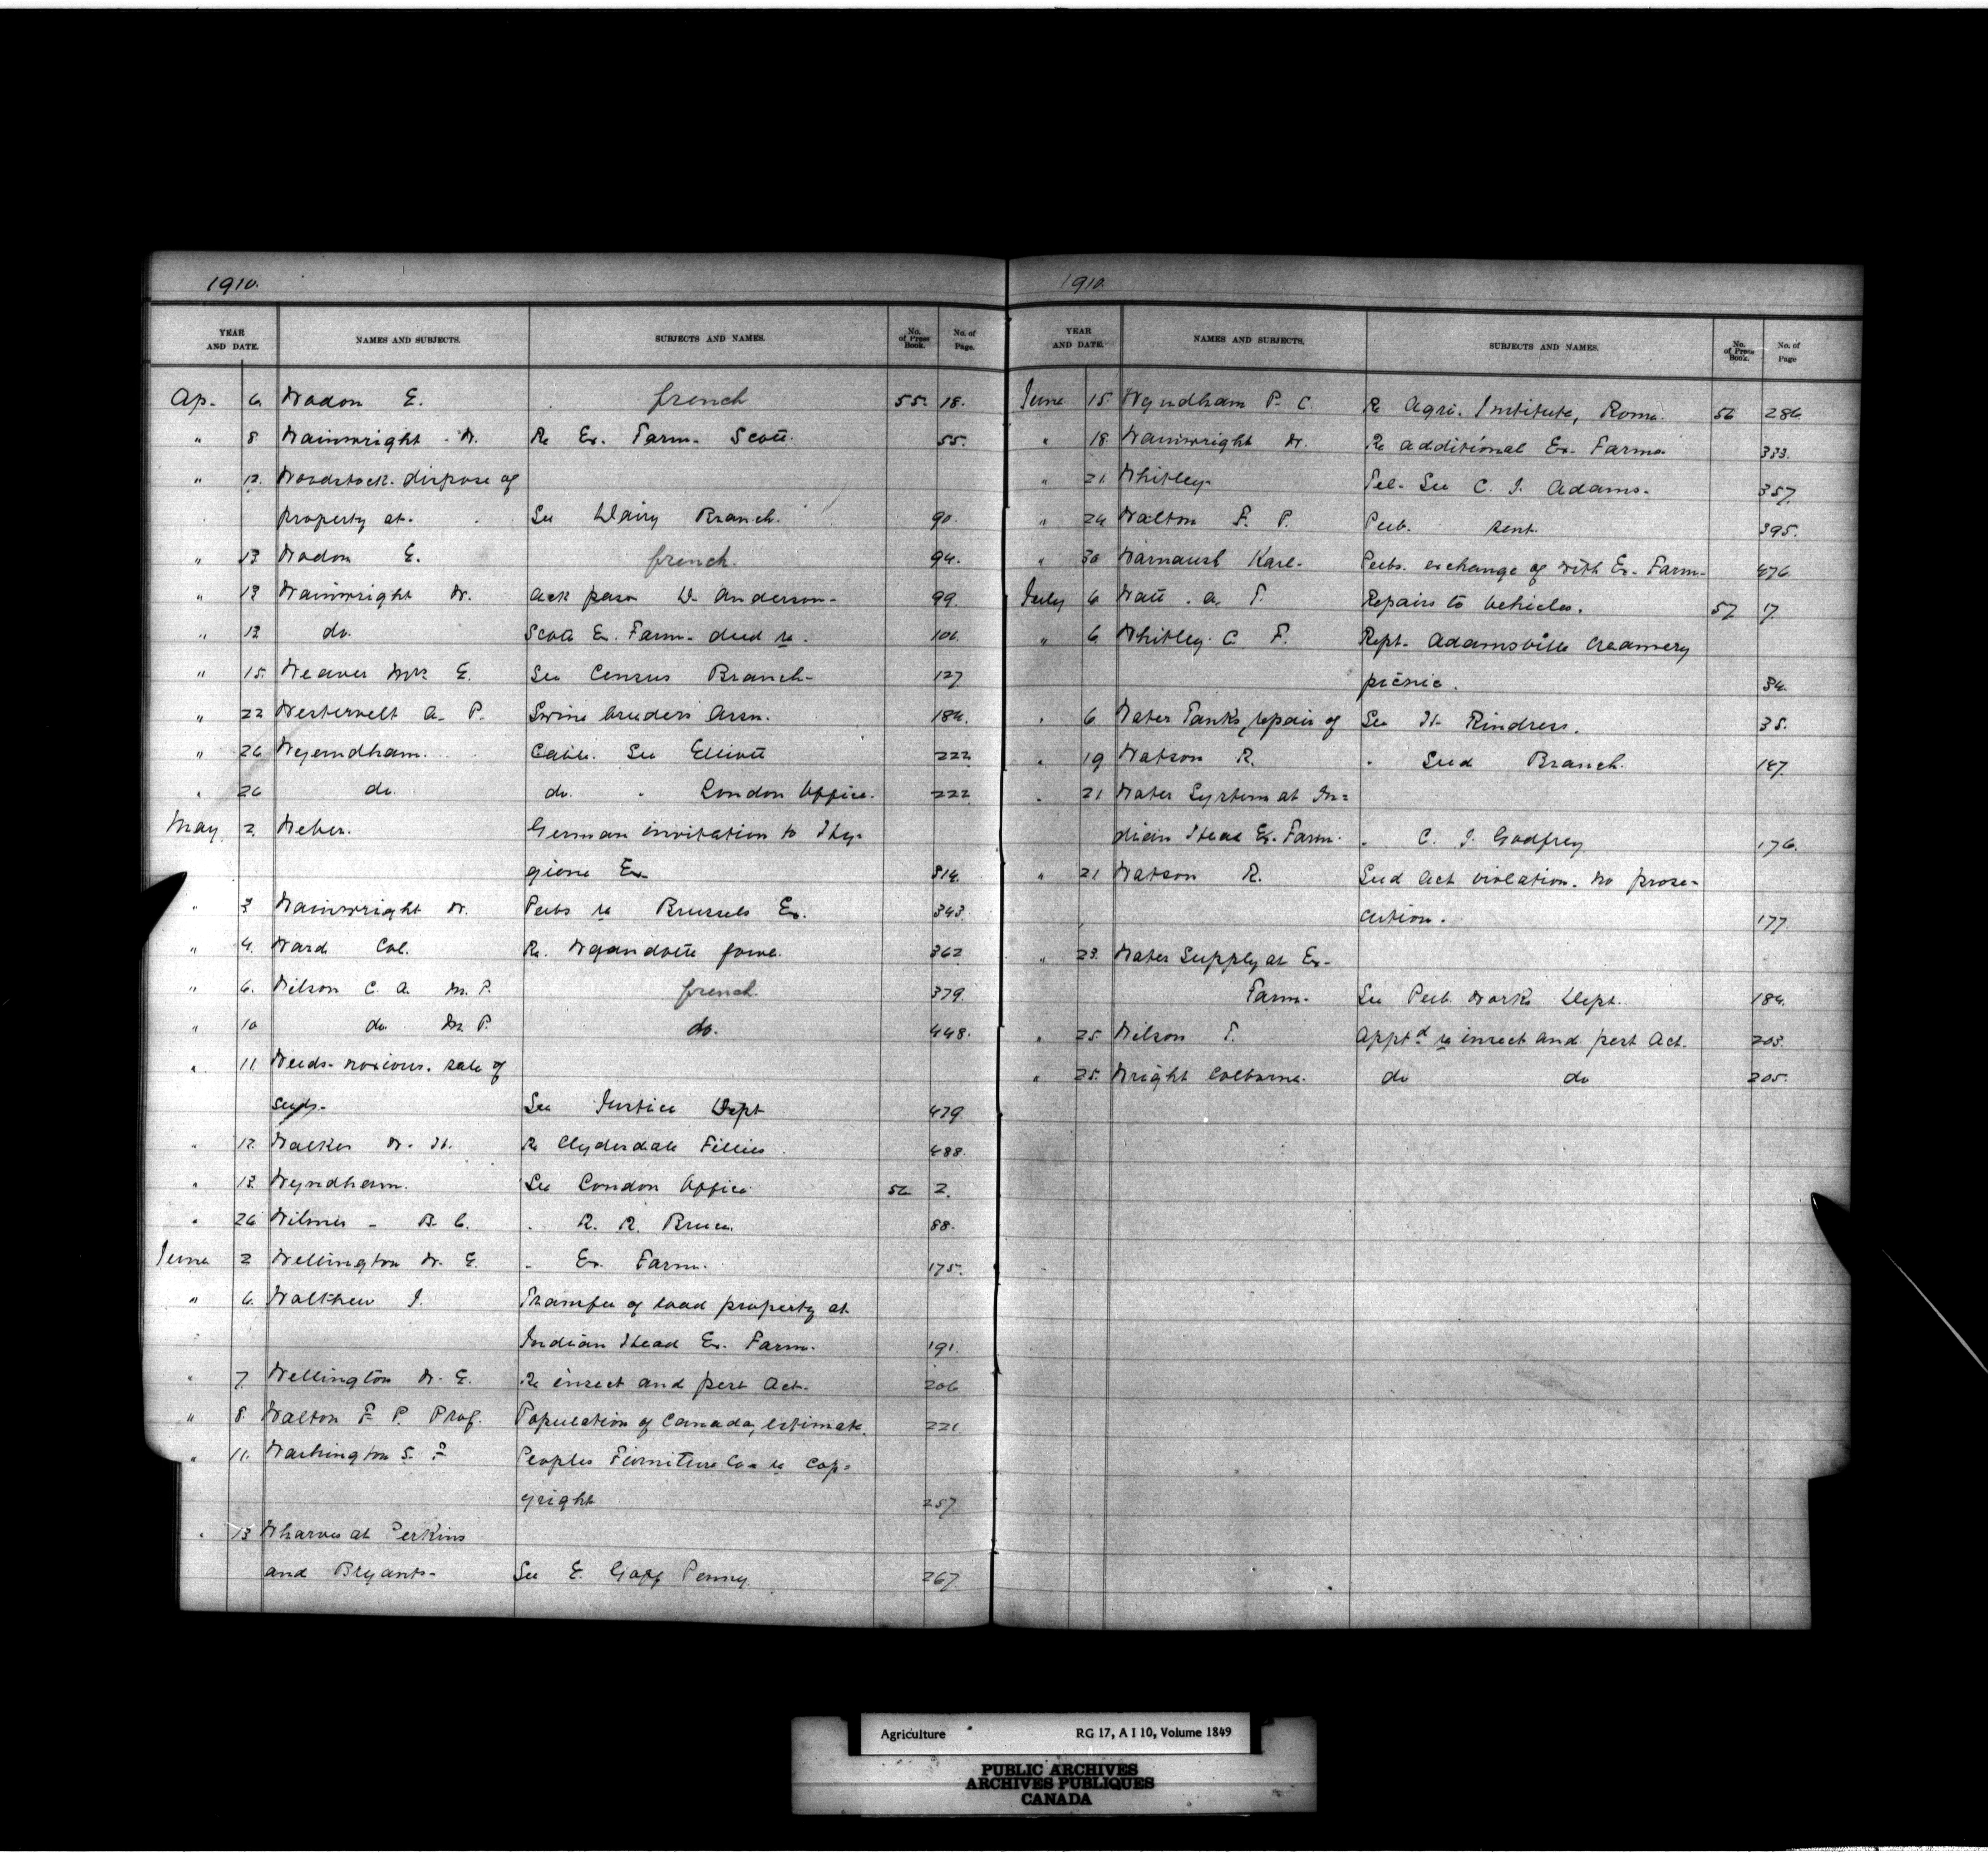 1910.
YEAR AND DATE. NAMES AND SUBJECTS. SUBJECTS AND NAMES. No. of Press Book. No. of Page.
Ap. 6. Wadon E. french 55. 18.
" 8. Wainwright W. Re Ex. Farm. Scott. 55.
" 12. Woodstock. dispose of
property at. See Dairy Branch. 90.
" 13 Wadon E. french. 94.
" 13 Wainwright W. Ack pass W. Anderson. 99.
" 13 do. Scott Ex. Farm. deed re. 106.
" 15. Weaver Mrs E. See Census Branch. 127
" 22 Westervelt A. P. Swine breeders Assn. 184.
" 26 Wyndham. Cable. See Elliott 222
" 26 do. do. " London Office. 222
May 2. Weber. German invitation to Hy-
giene Ex. 314.
" 3 Wainwright W. Pubs re Brussels Ex. 343.
" 4. Ward Col. Re. Wyandotte fowl. 362
" 6. Wilson C. A. M. P. french. 379.
" 10 do M. P. do. 448.
" 11. Weeds. noxious. sale of
seeds. See Justice Dept 479
" 12. Walker W. H. Re Clydesdale Fillies. 488.
" 13. Wyndham. See London Office 56 2.
" 26 Wilmer - B. C. " R. R. Bruce. 88.
June 2 Wellington W. E. " Ex. Farm. 175.
" 6. Walthew J. Transfer of load property at
Indian Head Ex. Farm. 191.
" 7. Wellington W. E. Re insect and pest Act. 206
" 8. Walton F. P. Prof. Population of Canada, estimate. 221
" 11. Washington S. F. Peoples Furniture Co. re Cop-
yright 257
" 13 Wharves at Perkins
and Bryants. See E. Goff Penny. 267
1910.
YEAR AND DATE. NAMES AND SUBJECTS. SUBJECTS AND NAMES. No. of Press Book. No. of Page
June 15. Wyndham P. C. Re Agri. Institute, Rome. 56 286.
" 18. Wainwright W. Re additional Ex. Farms. 333.
" 21 Whitley. Tel. See C. J. Adams. 357.
" 24 Walton F. P. Pub. sent. 395.
" 30 Karl. Pubs. exchange of with Ex. Farm. 476
July 6 Watt. A. T. Repairs to vehicles. 57 17.
" 6 Whitley. C. F. Rept. Adamsville Creamery
picnic. 34.
" 6. Water Tanks, repair of See H. Rindress. 35.
" 19 Watson R. " Seed Branch. 147.
" 21 Water System at In-
dian Head Ex. Farm. " C. J. Godfrey 176.
" 21 Watson R. Seed Act violation. no prose-
cution. 177
" 23. Water Supply at Ex.
Farm. See Pub. Works Dept. 184.
" 25. Wilson T. Apptd re insect and pest Act. 203.
" 25. Wright Colborne. do do 205.
Agriculture RG 17, A I 10, Volume 1849
PUBLIC ARCHIVES
ARCHIVES PUBLIQUES
CANADA